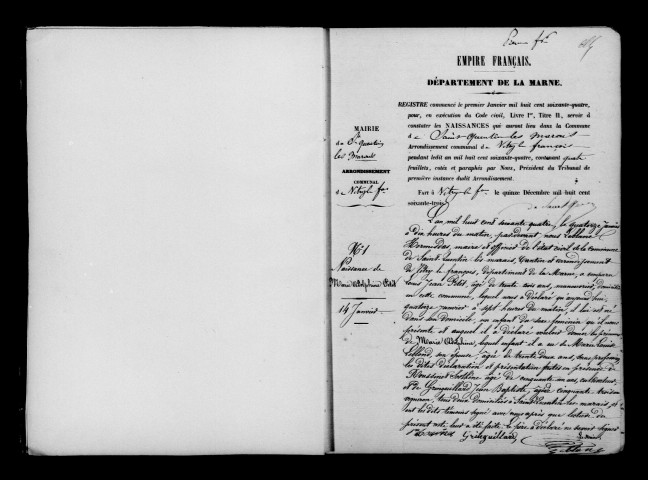 EMPIRE FRANÇAIS.
DÉPARTEMENT DE LA MARNE.
REGISTRE commencé le premier Janvier mil huit cent soixante-quatre,
pour, en exécution du Code civil, Livre Ier, Titre II, servir à
constater les NAISSANCES qui auront lieu dans la Commune
de Saint-Quentin-les Marais
Arrondissement communal de Vitry-le françois
pendant ledit an mil huit cent soixante-quatre, contenant quatre
feuillets, cotés et paraphés par Nous, Président du Tribunal de
première instance dudit Arrondissement.
FAIT à Vitry-le-fs. le quinze Décembre mil huit cent
soixante-trois.
MAIRIE
de St. Quentin
les Marais
ARRONDISSEMENT
COMMUNAL
de Vitry-le fs.
No 1
Naissance de
Marie Delphine Petit
14 Janvier
L'an mil huit cent soixante quatre, le quatorze Janvier
à dix heures du matin, pardevant nous
maire et officier de l'état civil de la commune
de Saint Quentin les marais, Canton et arrondissement
de Vitry le françois, département de la Marne, a comparu
Jean Petit, âgé de trente trois ans, manouvrier, domicilié
en cette commune, lequel nous a déclaré qu'aujourd'hui
quatorze janvier à sept heures du matin, il lui est né
dans son domicile, un enfant du sexe féminin qu'il nous
présente et auquel il a déclaré vouloir donner le prénom
de Marie Delphine, lequel enfant il a eu de Marie
son épouse âgée de trente deux ans, sans profession
les dites déclaration et présentation faites en présence de
âgé de cinquante un ans, cultivateur,
et de Grinquillard Jean Baptiste, âgé de cinquante trois ans
vigneron, tous deux domiciliés à Saint Quentin les marais
ont les dits témoins signé avec nous après que lecture du
présent acte leur a été faite. le père a déclaré ne savoir signer
Grinquillard